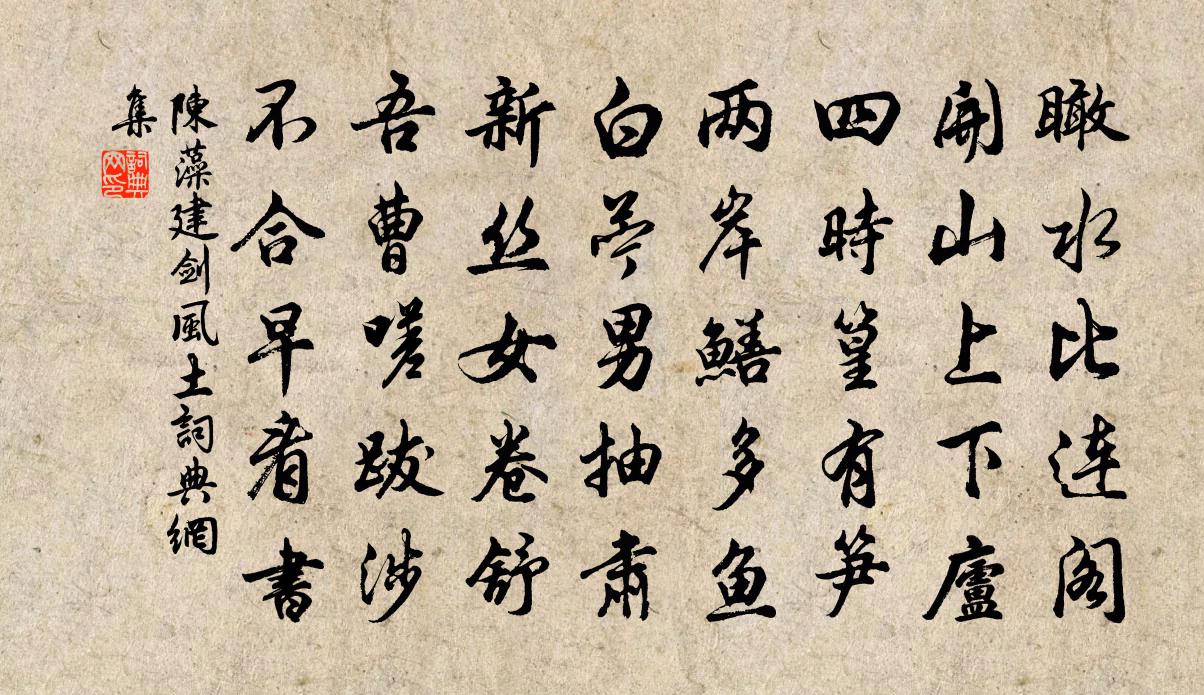 瞰水比连阁
開山上下廬
四時篁有笋
两岸鱔多鱼
白苎男抽肃
新丝女卷舒
吾曹嗟跋涉
不合早看書
陳藻建劍風土詞典網
集
詞典网印